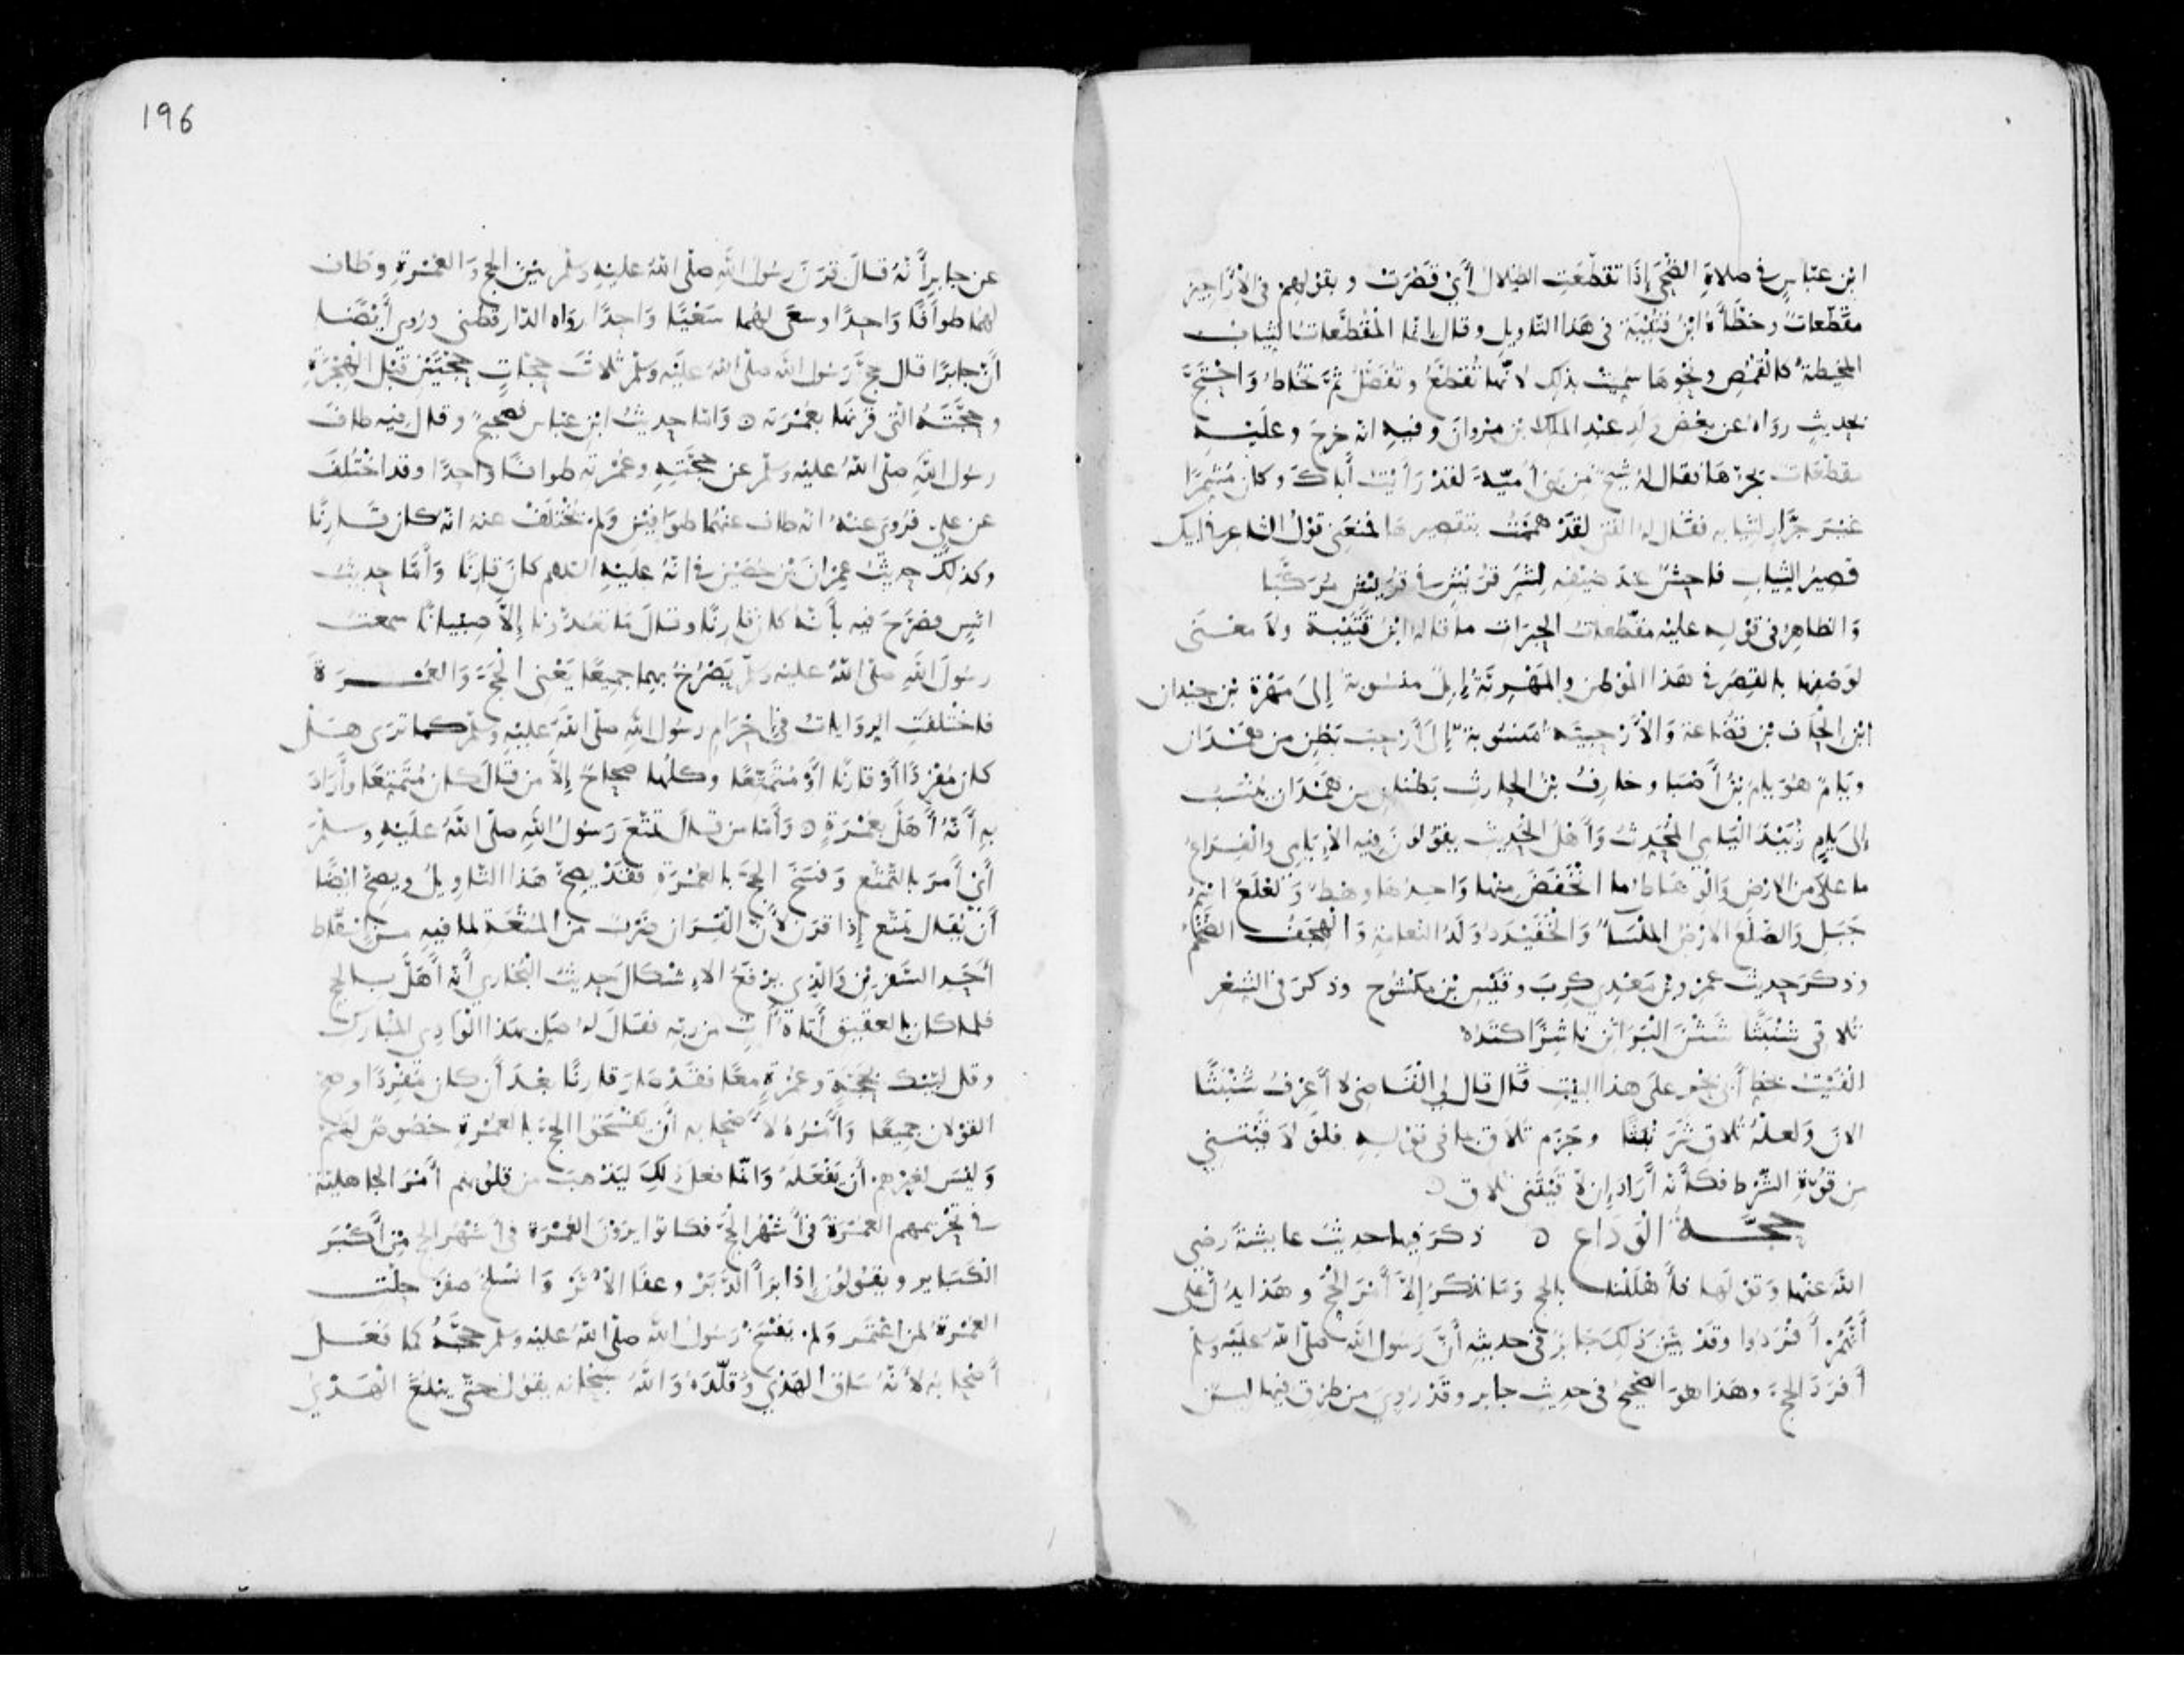 ابن عباس في صلاة الضحى إذا تقطعت الظلال أي قصرت وبقولهم في الأراجيز
مقطعات وخطأه ابن قتيبة في هذا التاويل وقال إنما المقطعات الثياب
المخيطة كالقمص ونحوها سميت بذلك لانها تقطع وتفصل ثم تخاط واحتج
بحديث رواه عن بعض ولد عبد الملك بن مروان وفيه انه خرج وعليه
مقطعات يجرها فقال له شيخ من بني أمية لقد رأيت أباك وكان مشمرا
غير جرار لثيابه فقال له الفتى لقد هممت بتقصيرها فمنعني قول الشاعر في ابيك
قصير الثياب فاحش عند ضيفه لشر قريش في قريش مركبا
والظاهر في قوله عليه مقطعات الحبرات ما قاله ابن قتيبة ولا معنى
لوصفها بالقصر في هذا الموطن والمهرية إبل منسوبة إلى مهرة بن حيدان
ابن الحاف بن قضاعة والأرحبية منسوبة إلى أرحب بطن من همدان
ويام هو يام بن أصبا وخارف بن الحارث بطنان من همدان ينسب
إلى يام زبيد اليامي المحدث وأهل الحديث يقولون فيه الإيامي والفراع
ما علا من الارض والوهاط ما انخفض منها واحدها وهط ولعلع اسم
جبل والصلع الارض الملساء والخفيدد ولد النعامة والهجف الضخم
وذكر حديث عمرو بن معدي كرب وقيس بن مكشوح وذكر في الشعر
تلاقي شنبثا شثن البراثن ناشزا كتده
الفيت بخط أبي بحر على هذا البيت قال قال لي القاضي لا أعرف شنبثا
الان ولعله تلاق شرنبثا وجزم تلاق بما في قوله فلو لاقيتني
من قوة الشرط فكأنه أراد إن لاقيتني تلاق ه
حجة الوداع ه ذكر فيها حديث عايشة رضي
الله عنها وقولها فأهللنا بالحج وما نذكر إلا أمر الحج وهذا يدل على
أنهم أفردوا وقد بين ذلك جابر في حديثه أن رسول الله صلى الله عليه وسلم
أفرد الحج وهذا هو الصحيح في حديث جابر وقد روي من طرق فيها لين
196
عن جابر أنه قال قرن رسول الله صلى الله عليه وسلم بين الحج والعمرة وطاف
لهما طوافا واحدا وسعى لهما سعيا واحدا رواه الدارقطني وروي أيضا
أن جابرا قال حج رسول الله صلى الله عليه وسلم ثلاث حجات حجتين قبل الهجرة
وحجته التي قرنها بعمرته ه واما حديث ابن عباس فصحيح وقال فيه طاف
رسول الله صلى الله عليه وسلم عن حجته وعمرته طوافا واحدا وقد اختلف
عن علي فروي عنه انه طاف عنهما طوافين ولم يختلف عنه انه كان قارنا
وكذلك حديث عمران بن حصين في انه عليه السلام كان قارنا وأما حديث
انس فصرح فيه بأنه كان قارنا وقال ما تعدوننا إلا صبيانا سمعت
رسول الله صلى الله عليه وسلم يصرخ بهما جميعا يعني الحج والعمرة
فاختلفت الروايات في إحرام رسول الله صلى الله عليه وسلم كما ترى هل
كان مفردا أو قارنا أو متمتعا وكلها صحاح إلا من قال كان متمتعا وأراد
به أنه أهل بعمرة ه وأما من قال تمتع رسول الله صلى الله عليه وسلم
أي أمر بالتمتع وفسخ الحج بالعمرة فقد يصح هذا التاويل ويصح ايضا
أن يقال تمتع إذا قرن لأن القران ضرب من المتعة لما فيه من إسقاط
أحد السفرين والذي يرفع الإشكال حديث البخاري أنه أهل بالحج
فلما كان بالعقيق أتاه آت من ربه فقال له صل بهذا الوادي المبارك
وقل لبيك بحجة وعمرة معا فقد صار قارنا بعد أن كان مفردا وصح
القولان جميعا وأمره لأصحابه أن يفسخوا الحج بالعمرة خصوص لهم
وليس لغيرهم أن يفعله وانما فعل ذلك ليذهب من قلوبهم أمر الجاهلية
في تحريمهم العمرة في أشهر الحج فكانوا يرون العمرة في أشهر الحج من أكبر
الكباير ويقولون إذا برأ الدبر وعفا الأثر وانسلخ صفر حلت
العمرة لمن اعتمر ولم يفسخ رسول الله صلى الله عليه وسلم حجه كما فعل
أصحابه لأنه ساق الهدي وقلده والله سبحانه يقول حتى يبلغ الهدي